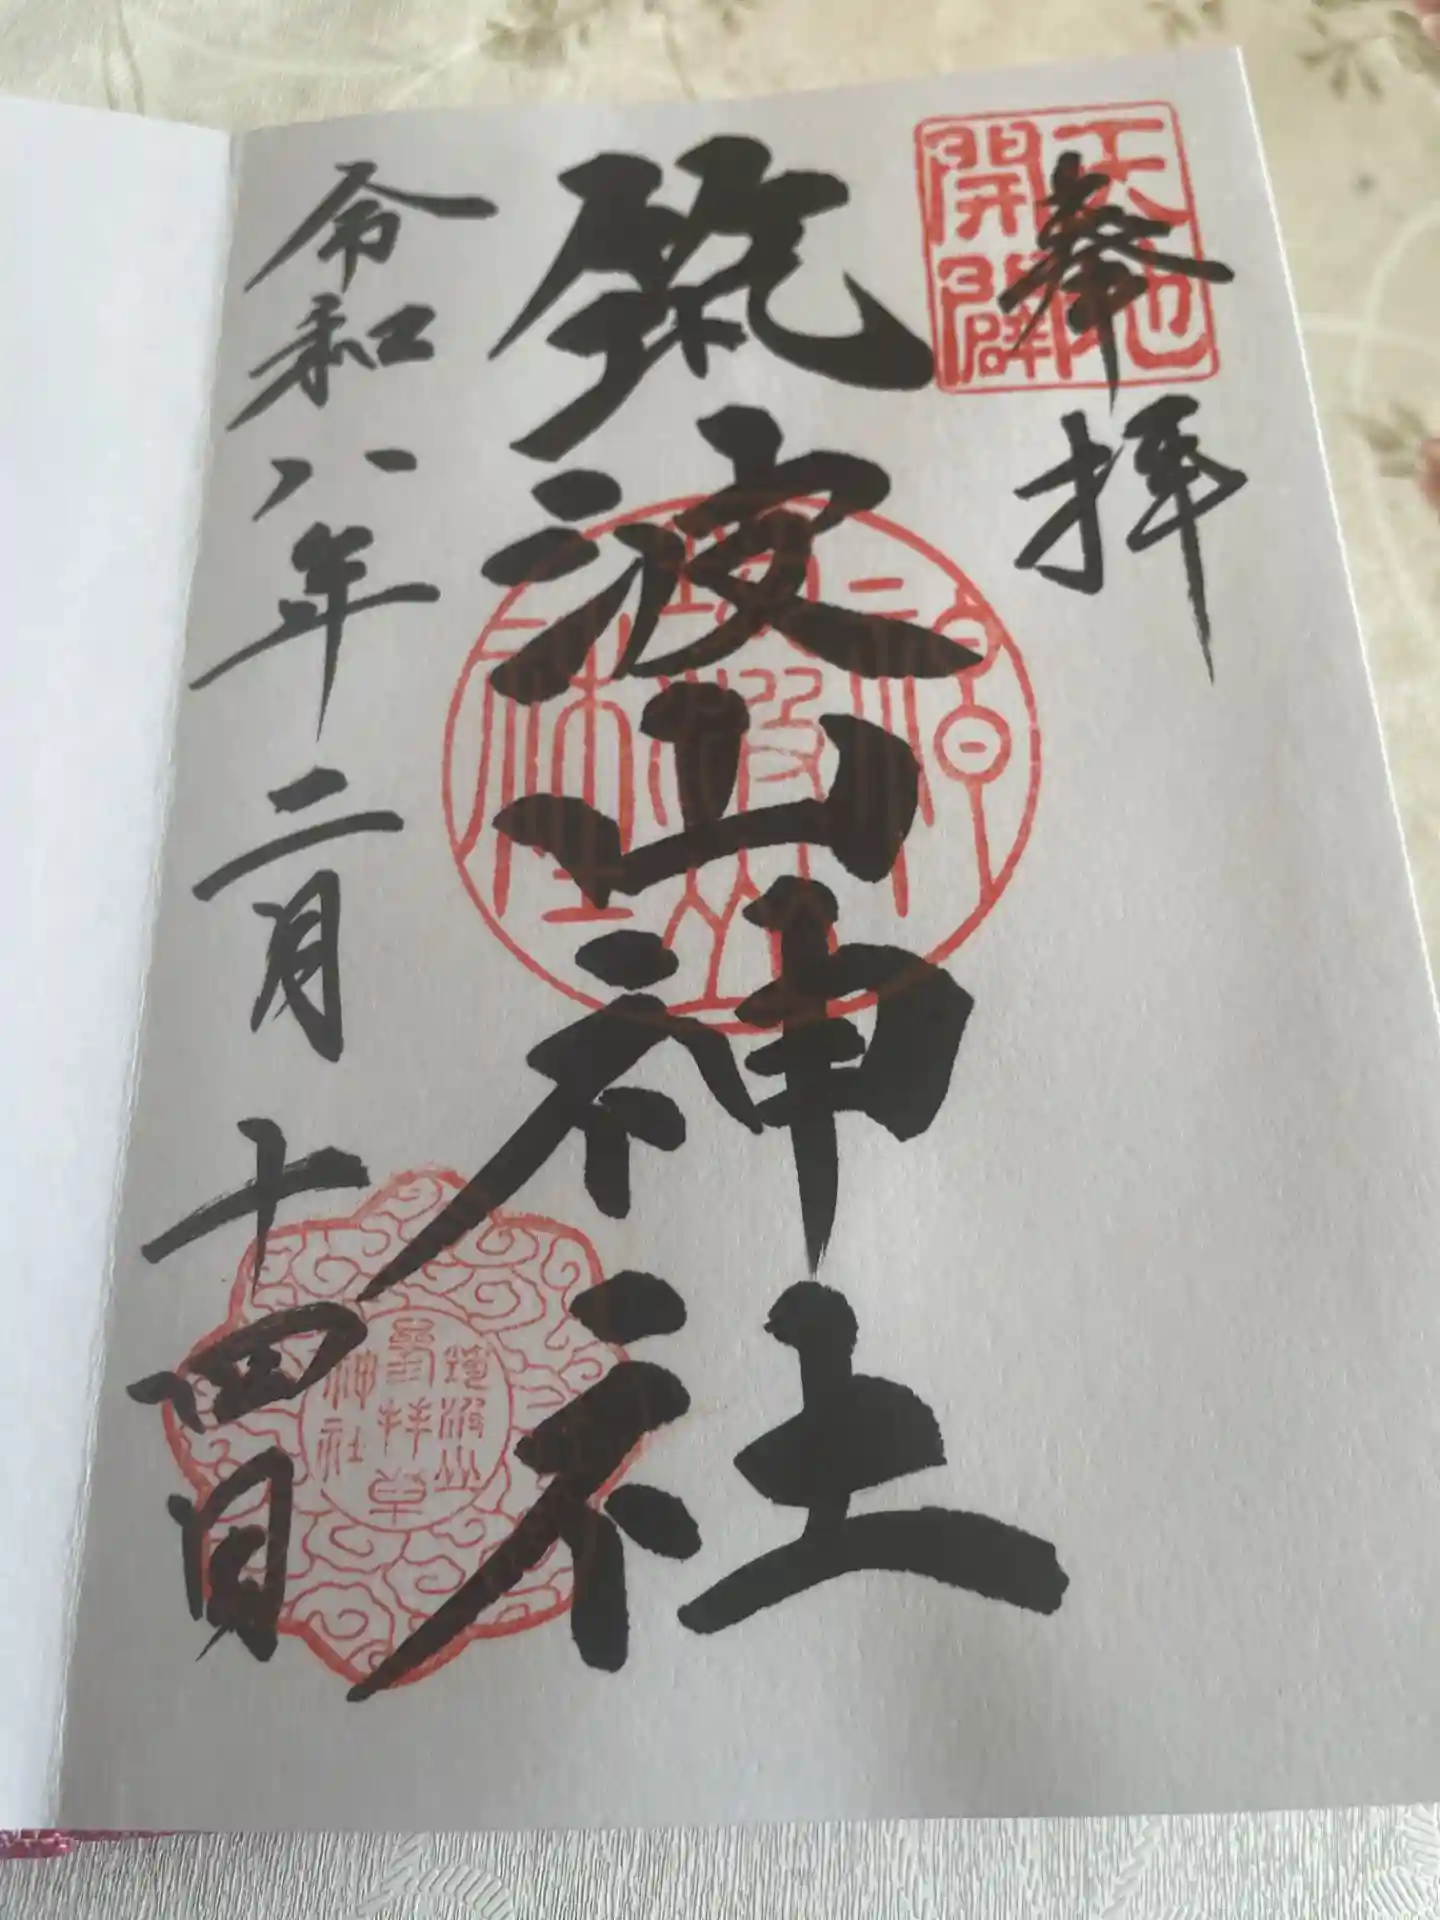 奉拝
天地
開闢
筑波山神社
筑波山
参拝章
神社
令和八年二月十四日